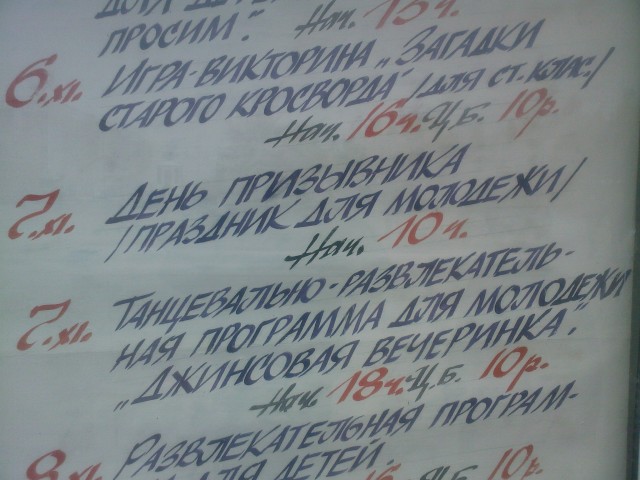 ПРОСИМ". Нач. 15 ч.
6.XI. ИГРА-ВИКТОРИНА „ЗАГАДКИ
СТАРОГО КРОСВОРДА" /ДЛЯ СТ. КЛАС./
Нач. 16 ч. Ц.Б. 10 р.
7.XI. ДЕНЬ ПРИЗЫВНИКА
/ПРАЗДНИК ДЛЯ МОЛОДЕЖИ/
Нач. 10 ч.
7.XI. ТАНЦЕВАЛЬНО-РАЗВЛЕКАТЕЛЬ-
НАЯ ПРОГРАММА ДЛЯ МОЛОДЕЖИ
„ДЖИНСОВАЯ ВЕЧЕРИНКА".
Нач. 18 ч. Ц.Б. 10 р.
8.XI. РАЗВЛЕКАТЕЛЬНАЯ ПРОГРАМ-
ДЛЯ ДЕТЕЙ.
Ц.Б. 10 р.